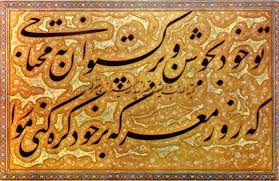 تو خود بجوشن و برگستوان نه محتاجی
که روز معرکه بر خود زره کنی مو را